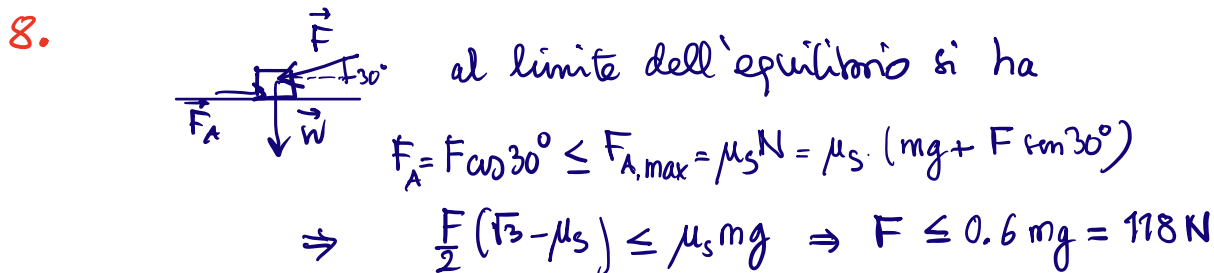 8.
F⃗
30°
F⃗_A
W⃗
al limite dell'equilibrio si ha
F_A = F cos 30° ≤ F_A,max = μ_s N = μ_s · (mg + F sen 30°)
⇒ F/2 (√3 - μ_s) ≤ μ_s mg ⇒ F ≤ 0.6 mg = 118 N